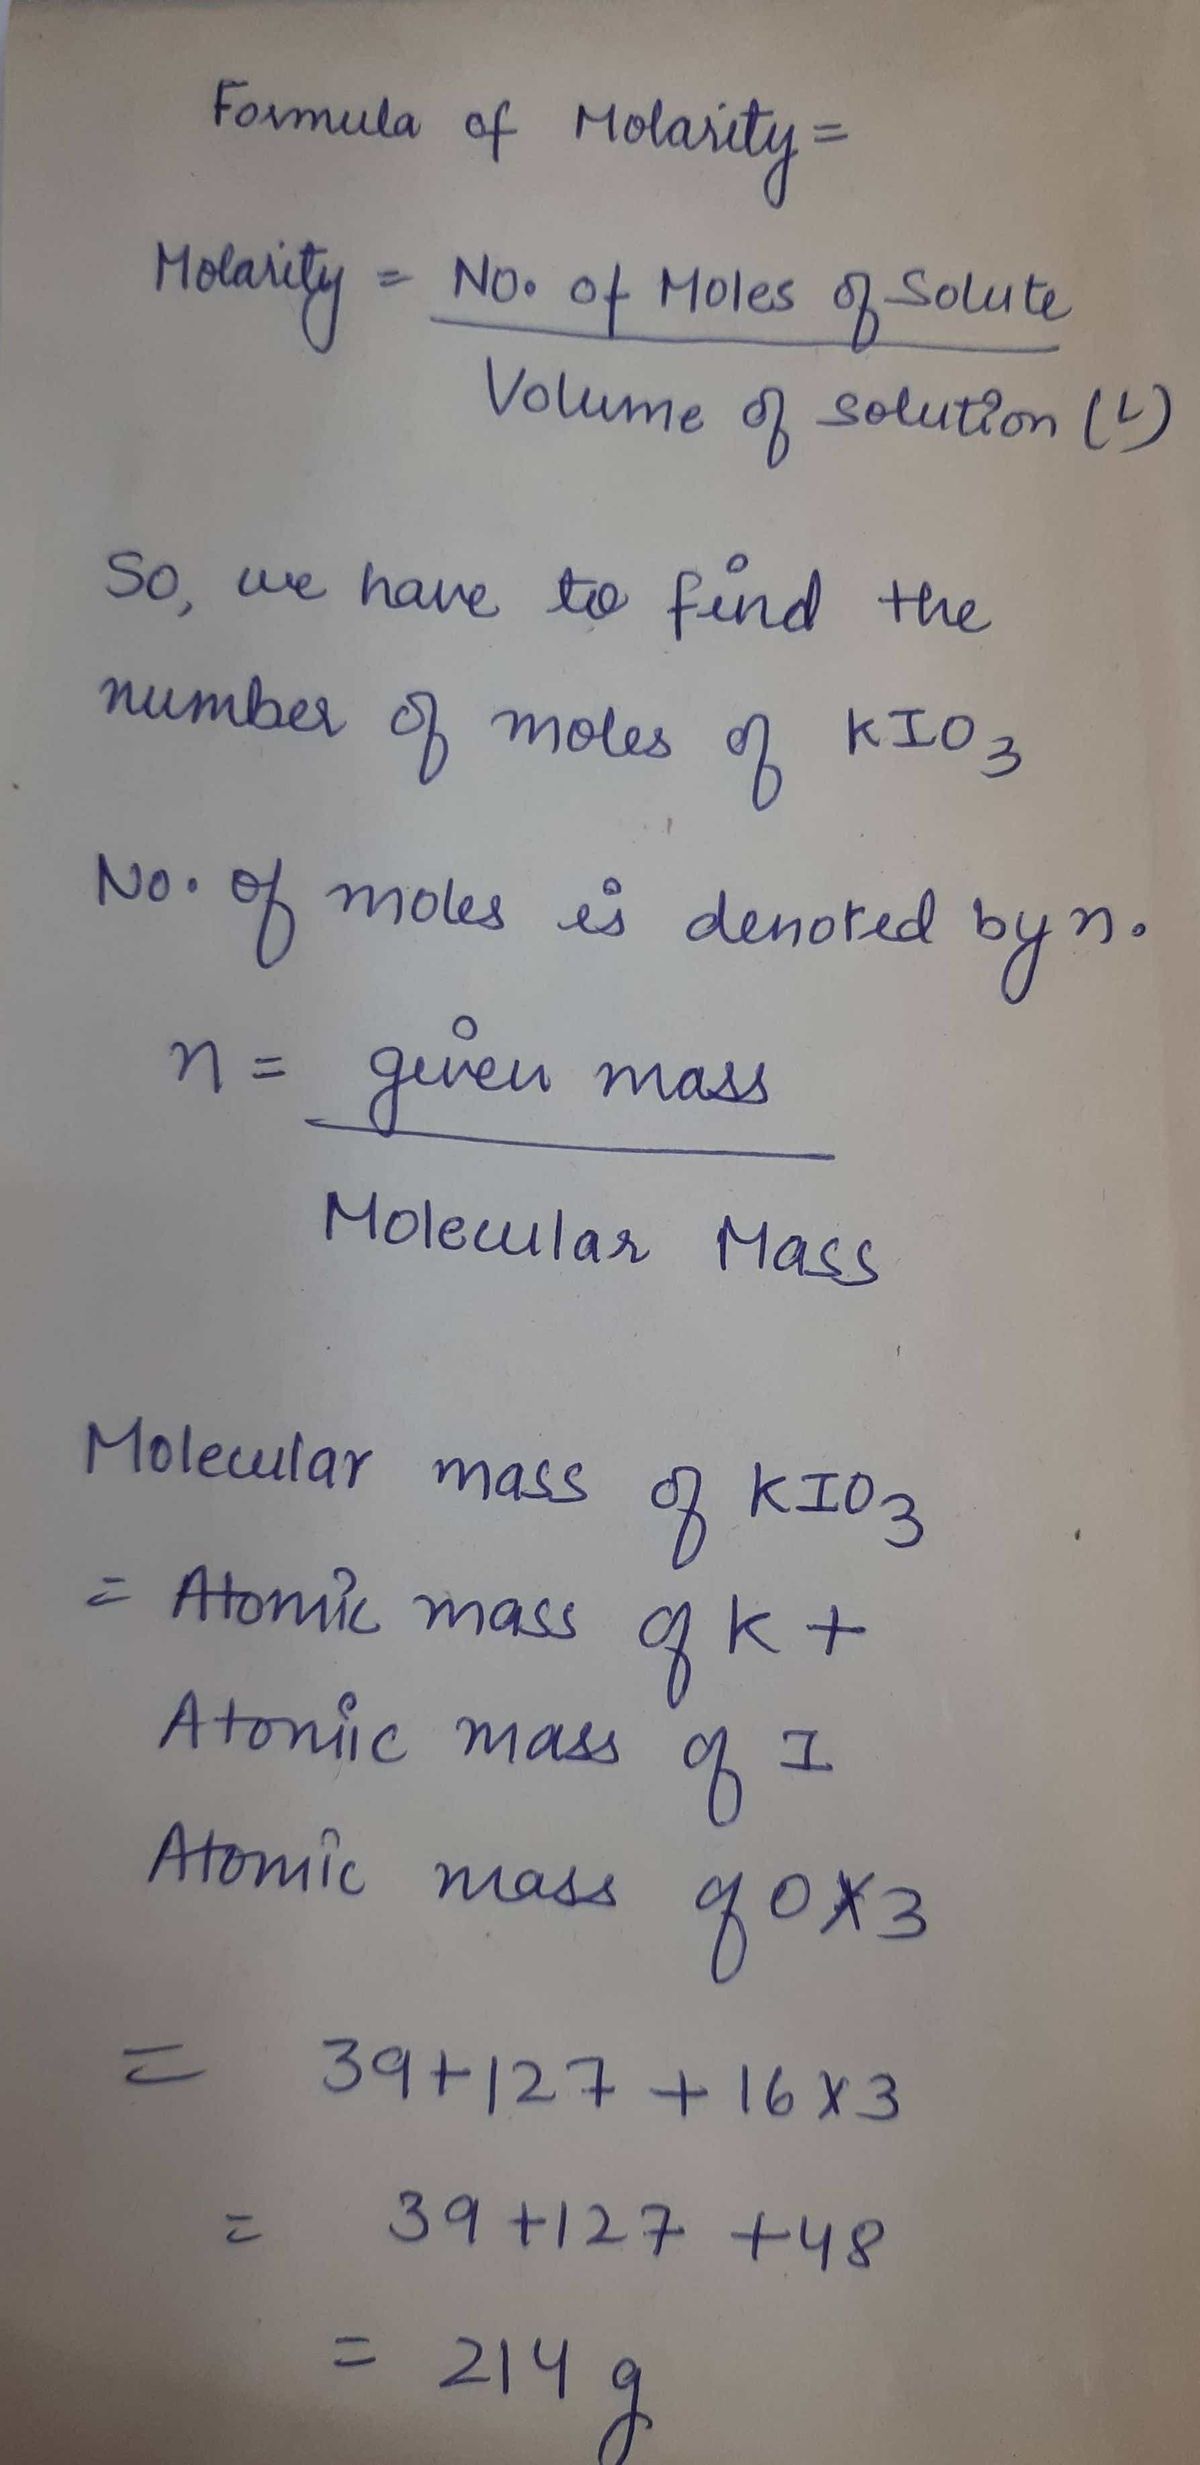 Formula of Molarity=
Molarity = No. of Moles of Solute
Volume of solution (L)
So, we have to find the
number of moles of KIO3
No. of moles is denoted by n.
n = given mass
Molecular Mass
Molecular mass of KIO3
= Atomic mass of K +
Atomic mass of I
Atomic mass of O X 3
= 39+127 + 16 x 3
= 39 +127 +48
= 214 g